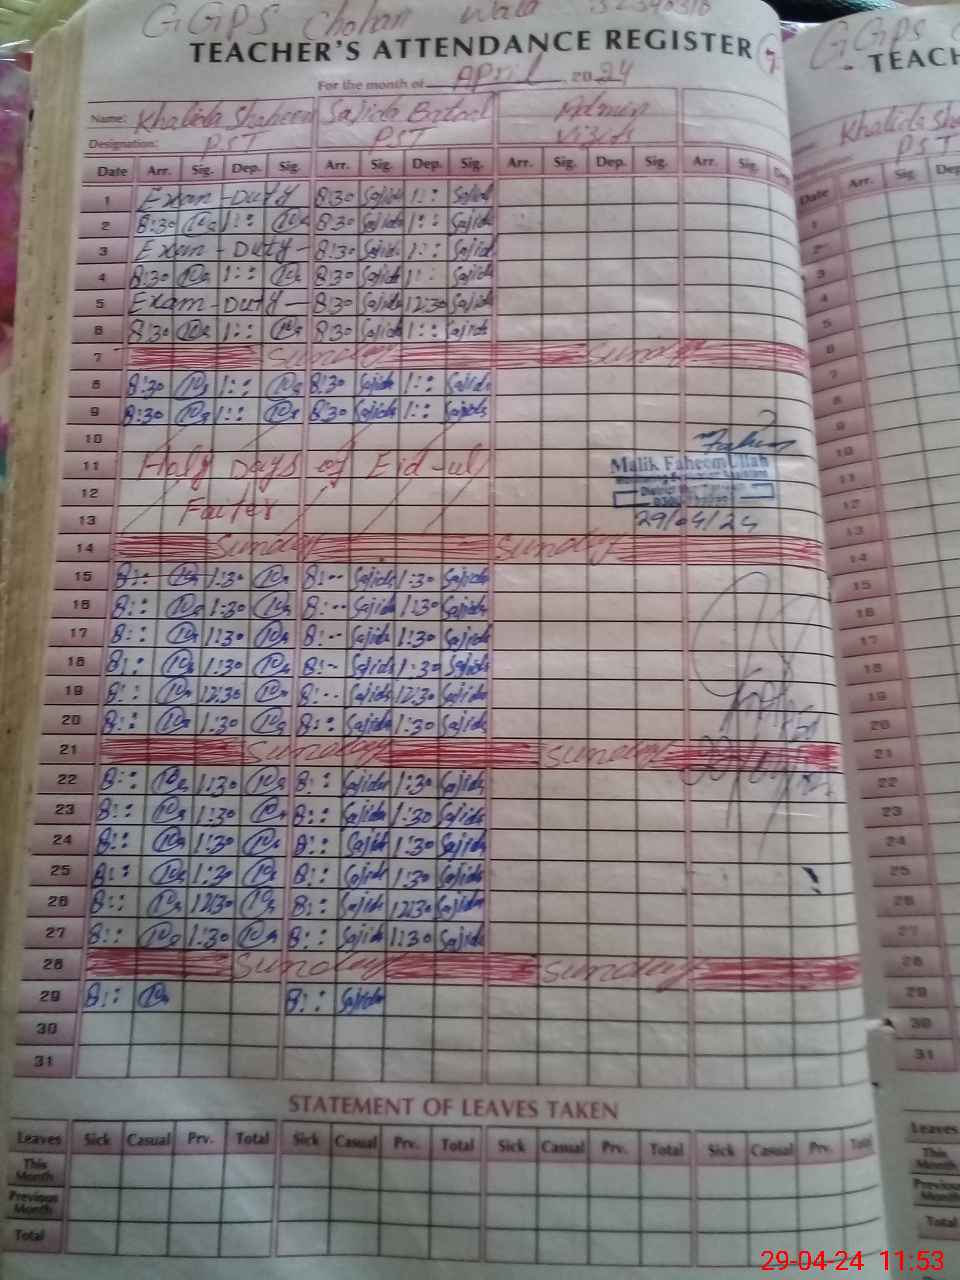 GGPS Chohan Wala 32340310
TEACHER'S ATTENDANCE REGISTER
For the month of April 2024
Name: Khalida Shaheen Sajida Batool Admin
Designation: PST PST Visits
Date Arr. Sig. Dep. Sig. Arr. Sig. Dep. Sig. Arr. Sig. Dep. Sig. Arr. Sig. Dep.
1 Exam-Duty 8:30 Sajida 1:: Sajida
2 8:30 1:: 8:30 Sajida 1:: Sajida
3 Exam-Duty- 8:30 Sajida 1:: Sajida
4 8:30 1:: 8:30 Sajida 1:: Sajida
5 Exam-Duty- 8:30 Sajida 12:30 Sajida
6 8:30 1:: 8:30 Sajida 1:: Sajida
7 Sunday Sunday
8 8:30 1:: 8:30 Sajida 1:: Sajida
9 8:30 1:: 8:30 Sajida 1:: Sajida
10
11 Haly Days of Eid-ul
12
Faiter
13
Malik Faheem Ullah
29/04/24
14 Sunday Sunday
15 8:: 1:30 8:-- Sajida 1:30 Sajida
16 8:: 1:30 8:-- Sajida 1:30 Sajida
17 8:: 1:30 8:-- Sajida 1:30 Sajida
18 8:: 1:30 8:-- Sajida 1:30 Sajida
19 8:: 12:30 8:-- Sajida 12:30 Sajida
20 8:: 1:30 8:: Sajida 1:30 Sajida
21 Sunday Sunday
22 8:: 1:30 8:: Sajida 1:30 Sajida
23 8:: 1:30 8:: Sajida 1:30 Sajida
24 8:: 1:30 8:: Sajida 1:30 Sajida
25 8:: 1:30 8:: Sajida 1:30 Sajida
26 8:: 12:30 8:: Sajida 12:30 Sajida
27 8:: 1:30 8:: Sajida 1:30 Sajida
28 Sunday Sunday
29 8:: 8:: Sajida
30
31
STATEMENT OF LEAVES TAKEN
Leaves Sick Casual Prv. Total Sick Casual Prv. Total Sick Casual Prv. Total Sick Casual Prv. Total
This Month
Previous Month
Total
GGPS
TEACH
Khalida Sha
PST
Date Arr. Sig. Dep
1
2
3
4
5
6
7
8
9
10
11
12
13
14
15
16
17
18
19
20
21
22
23
24
25
26
27
28
29
30
31
Leaves
This Month
Previous Month
Total
29-04-24 11:53